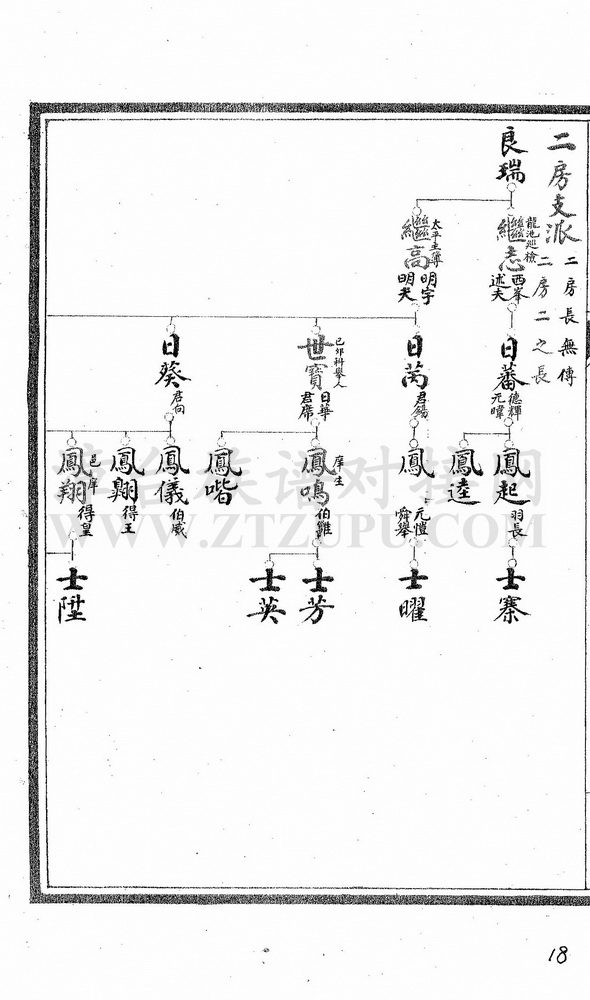 二房支派
二房長無傳
二房二之長
良瑞
龍池巡檢
繼志
西峯
述夫
太平主簿
繼高
明宇
明夫
日蕃
德輝
元暐
日芮
君錫
己卯科舉人
世寶
日華
君席
日葵
君向
鳳起
羽長
鳳逵
鳳
元愷
舜舉
庠生
鳳鳴
伯雝
鳳喈
鳳儀
伯威
得王
邑庠
鳳翔
得皇
士寨
士曜
士芳
士英
士陞
WWW.ZTZUPU.COM
18